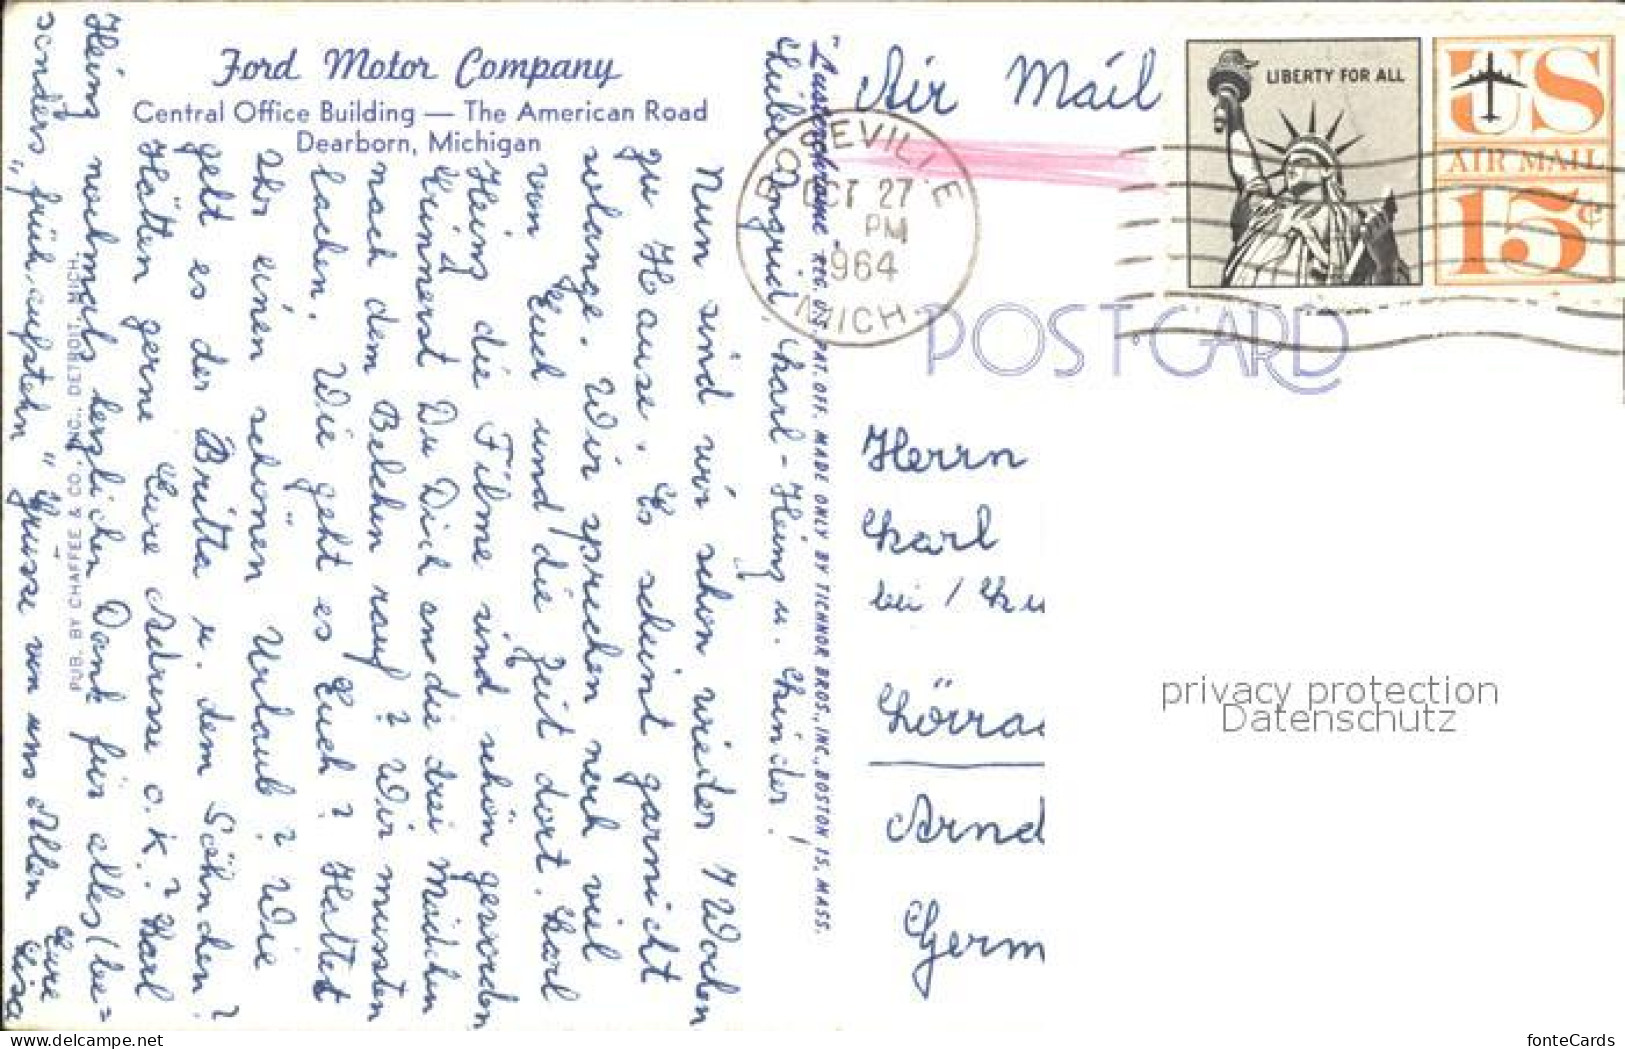 Ford Motor Company
Central Office Building — The American Road
Dearborn, Michigan
"Lusterchrome" REG. U.S. PAT. OFF. MADE ONLY BY TICHNOR BROS., INC., BOSTON 15, MASS.
PUB. BY CHAFFEE & CO., INC., DETROIT, MICH.
Air Mail
LIBERTY FOR ALL
US
AIR MAIL
15¢
OCT 27
PM
1964
MICH.
POST CARD
Liebe Ingrid, Karl-Heinz u. Kinder!
Nun sind wir schon wieder 7 Wochen
zu Hause. Es scheint garnicht
solange. Wir sprechen noch viel
von Euch und die Zeit dort. Karl
Heinz die Filme sind schön geworden
Erinnerst Du Dich an die drei Mädchen
nach dem Belchen rauf? Wir mussten
lachen. Wie geht es Euch? Hattet
Ihr einen schönen Urlaub? Wie
gelt es der Britta u. dem Söhnchen?
Hätten gerne Eure Adresse o.K.? Karl
Heinz nochmals herzlichen Dank für alles (be=
sonders früh aufstehn" Grüsse von uns Allen
Eure
Lisa
Herrn
Karl
bei / Ku
Lörrac
Arnd
Germ
privacy protection
Datenschutz
www.delcampe.net
fonteCards